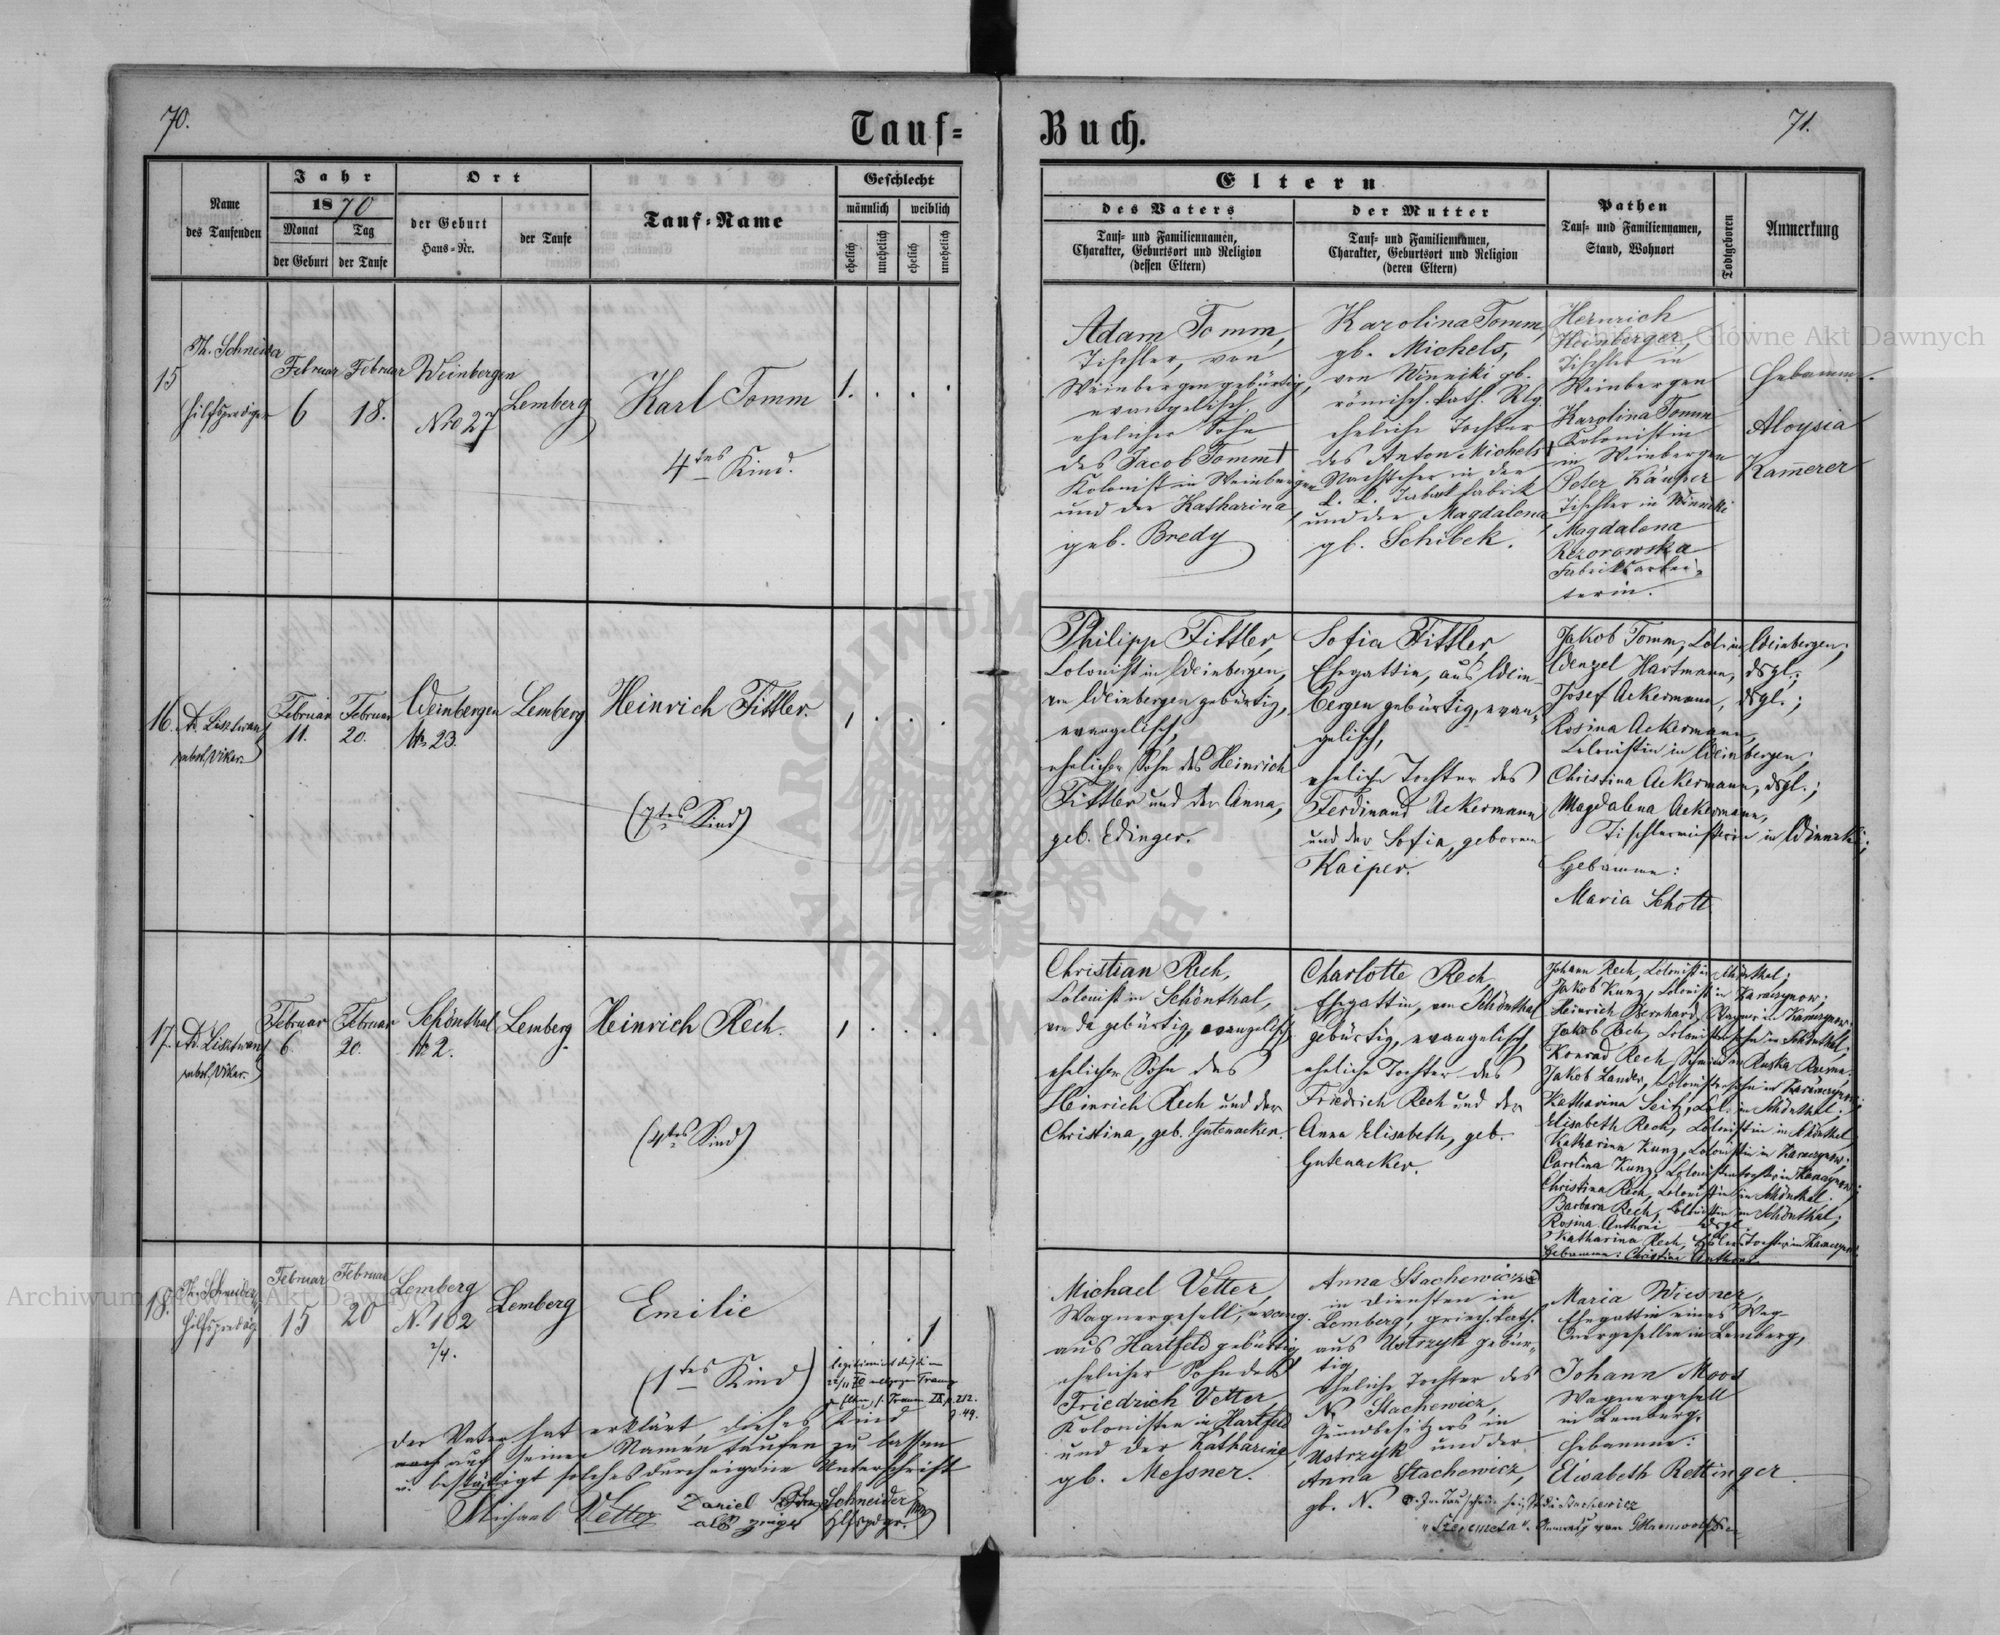 70.
Tauf=
Buch.
71.
Name
des Taufenden
Jahr
1870
Monat
der Geburt
Tag
der Taufe
Ort
der Geburt
Haus=Nr.
der Taufe
Tauf=Name
Geschlecht
männlich
weiblich
ehelich
unehelich
ehelich
unehelich
Eltern
des Vaters
Tauf= und Familiennamen,
Charakter, Geburtsort und Religion
(dessen Eltern)
der Mutter
Tauf= und Familiennamen,
Charakter, Geburtsort und Religion
(deren Eltern)
Pathen
Tauf= und Familiennamen,
Stand, Wohnort
Todtgeboren
Anmerkung
15
Th. Schneider
Hilfsprediger
Februar
6
Februar
18.
Weinbergen
Nro 27
Lemberg
Karl Tomm
4tes Kind.
1.
Adam Tomm,
Tischler, von
Weinbergen gebürtig,
evangelisch
ehelicher Sohn
des Jacob Tomm †
Kolonist in Weinbergen
und der Katharina,
geb. Bredy
Karolina Tomm,
gb. Michels,
von Winniki gb.
römisch. kath. Rlg.
eheliche Tochter
des Anton Michels †
in der
k. k. Tabak fabrik
und der Magdalena,
gb. Schibek.
Heinrich
Heinberger,
Tischler in
Weinbergen
Karolina Tomm
Kolonistin
in Weinbergen
Peter
Tischler in Winniki
Magdalena
Fabriksarbei=
terin.
Hebamme.
Aloysia
Kamerer
16.
Februar
11.
Februar
20.
Weinbergen
No 23.
Lemberg
Heinrich Fittler.
(7tes Kind)
1
Philipp Fittler,
Colonist in Weinbergen,
in Weinbergen gebürtig,
evangelisch,
ehelicher Sohn des Heinrich
Fittler und der Anna,
geb. Edinger.
Sofia Fittler,
Ehegattin, aus Wein=
bergen gebürtig, evan=
gelisch,
eheliche Tochter des
Ferdinand Ackermann
und der Sofia, geborne
Kaiper.
Jakob Tomm, Col. in Weinbergen;
Wenzel Hartmann, dsgl.;
Josef Ackermann, dsgl.;
Rosina Ackermann,
Colonistin in Weinbergen;
Christina Ackermann, dsgl.;
Magdalena Ackermann,
Tischlermeisterin in Winniki;
Hebamme:
Maria Schott
17.
Februar
6.
Februar
20.
Schönthal
No 2.
Lemberg
Heinrich Rech.
(4tes Kind)
1
Christian Rech,
Colonist in Schönthal,
von da gebürtig, evangelisch,
ehelicher Sohn des
Heinrich Rech und der
Christina, geb. Gutenacker.
Charlotte Rech,
Ehegattin, von Schönthal
gebürtig, evangelisch,
eheliche Tochter des
Friedrich Rech und der
Anna Elisabeth, geb.
Gutenacker.
Johann Rech, Colonist in Schönthal;
Jakob Kunz, Colonist in
Heinrich Bernhard, Wagner in
Jakob Rech, Colonistensohn in Schönthal;
Konrad Rech, Schmied in Ruska Rawa.
Jakob Lander, Colonistensohn in
Katharina Seitz, Col. in Schönthal.
Elisabeth Rech, Colonistin in Schönthal;
Katharina Kunz, Colonistin in
Carolina Kunz, Colonistentochter in
Christina Rech, Colonistin in Schönthal.
Barbara Rech, Colonistin in Schönthal;
Rosina Anthoni dsgl.
Katharina Rech,
Hebamme: Christina Anthoni
18.
Th. Schneider
Hilfspredig.
Februar
15
Februar
20
Lemberg
N. 102
2/4.
Lemberg
Emilie
(1tes Kind)
1
p. 212.
Z. 49.
Der Vater hat erklärt, dieses Kind
auf seinen Namen taufen zu lassen
u. bestätigt solches durch eigene Unterschrift
Michael Vetter
als Zeuge
Schneider
Hlfspdgr.
Michael Vetter,
Wagnergesell, evang.
aus Hartfeld gebürtig
ehelicher Sohn des
Friedrich Vetter,
Kolonisten in Hartfeld
und der Katharina
gb. Messner.
Anna Stachewicz
in Diensten in
Lemberg, griech. kath.
aus Ustrzyk gebür=
tig,
Eheliche Tochter des
N. Stachewicz,
Grundbesitzers in
Ustrzyk und der
Anna Stachewicz,
gb. N.
Maria Wiesner,
Ehegattin eines Wag=
nergesellen in Lemberg,
Johann Moos
Wagnergesell
in Lemberg.
Hebamme:
Elisabeth Rettinger.
Archiwum Główne Akt Dawnych
Archiwum Główne Akt Dawnych